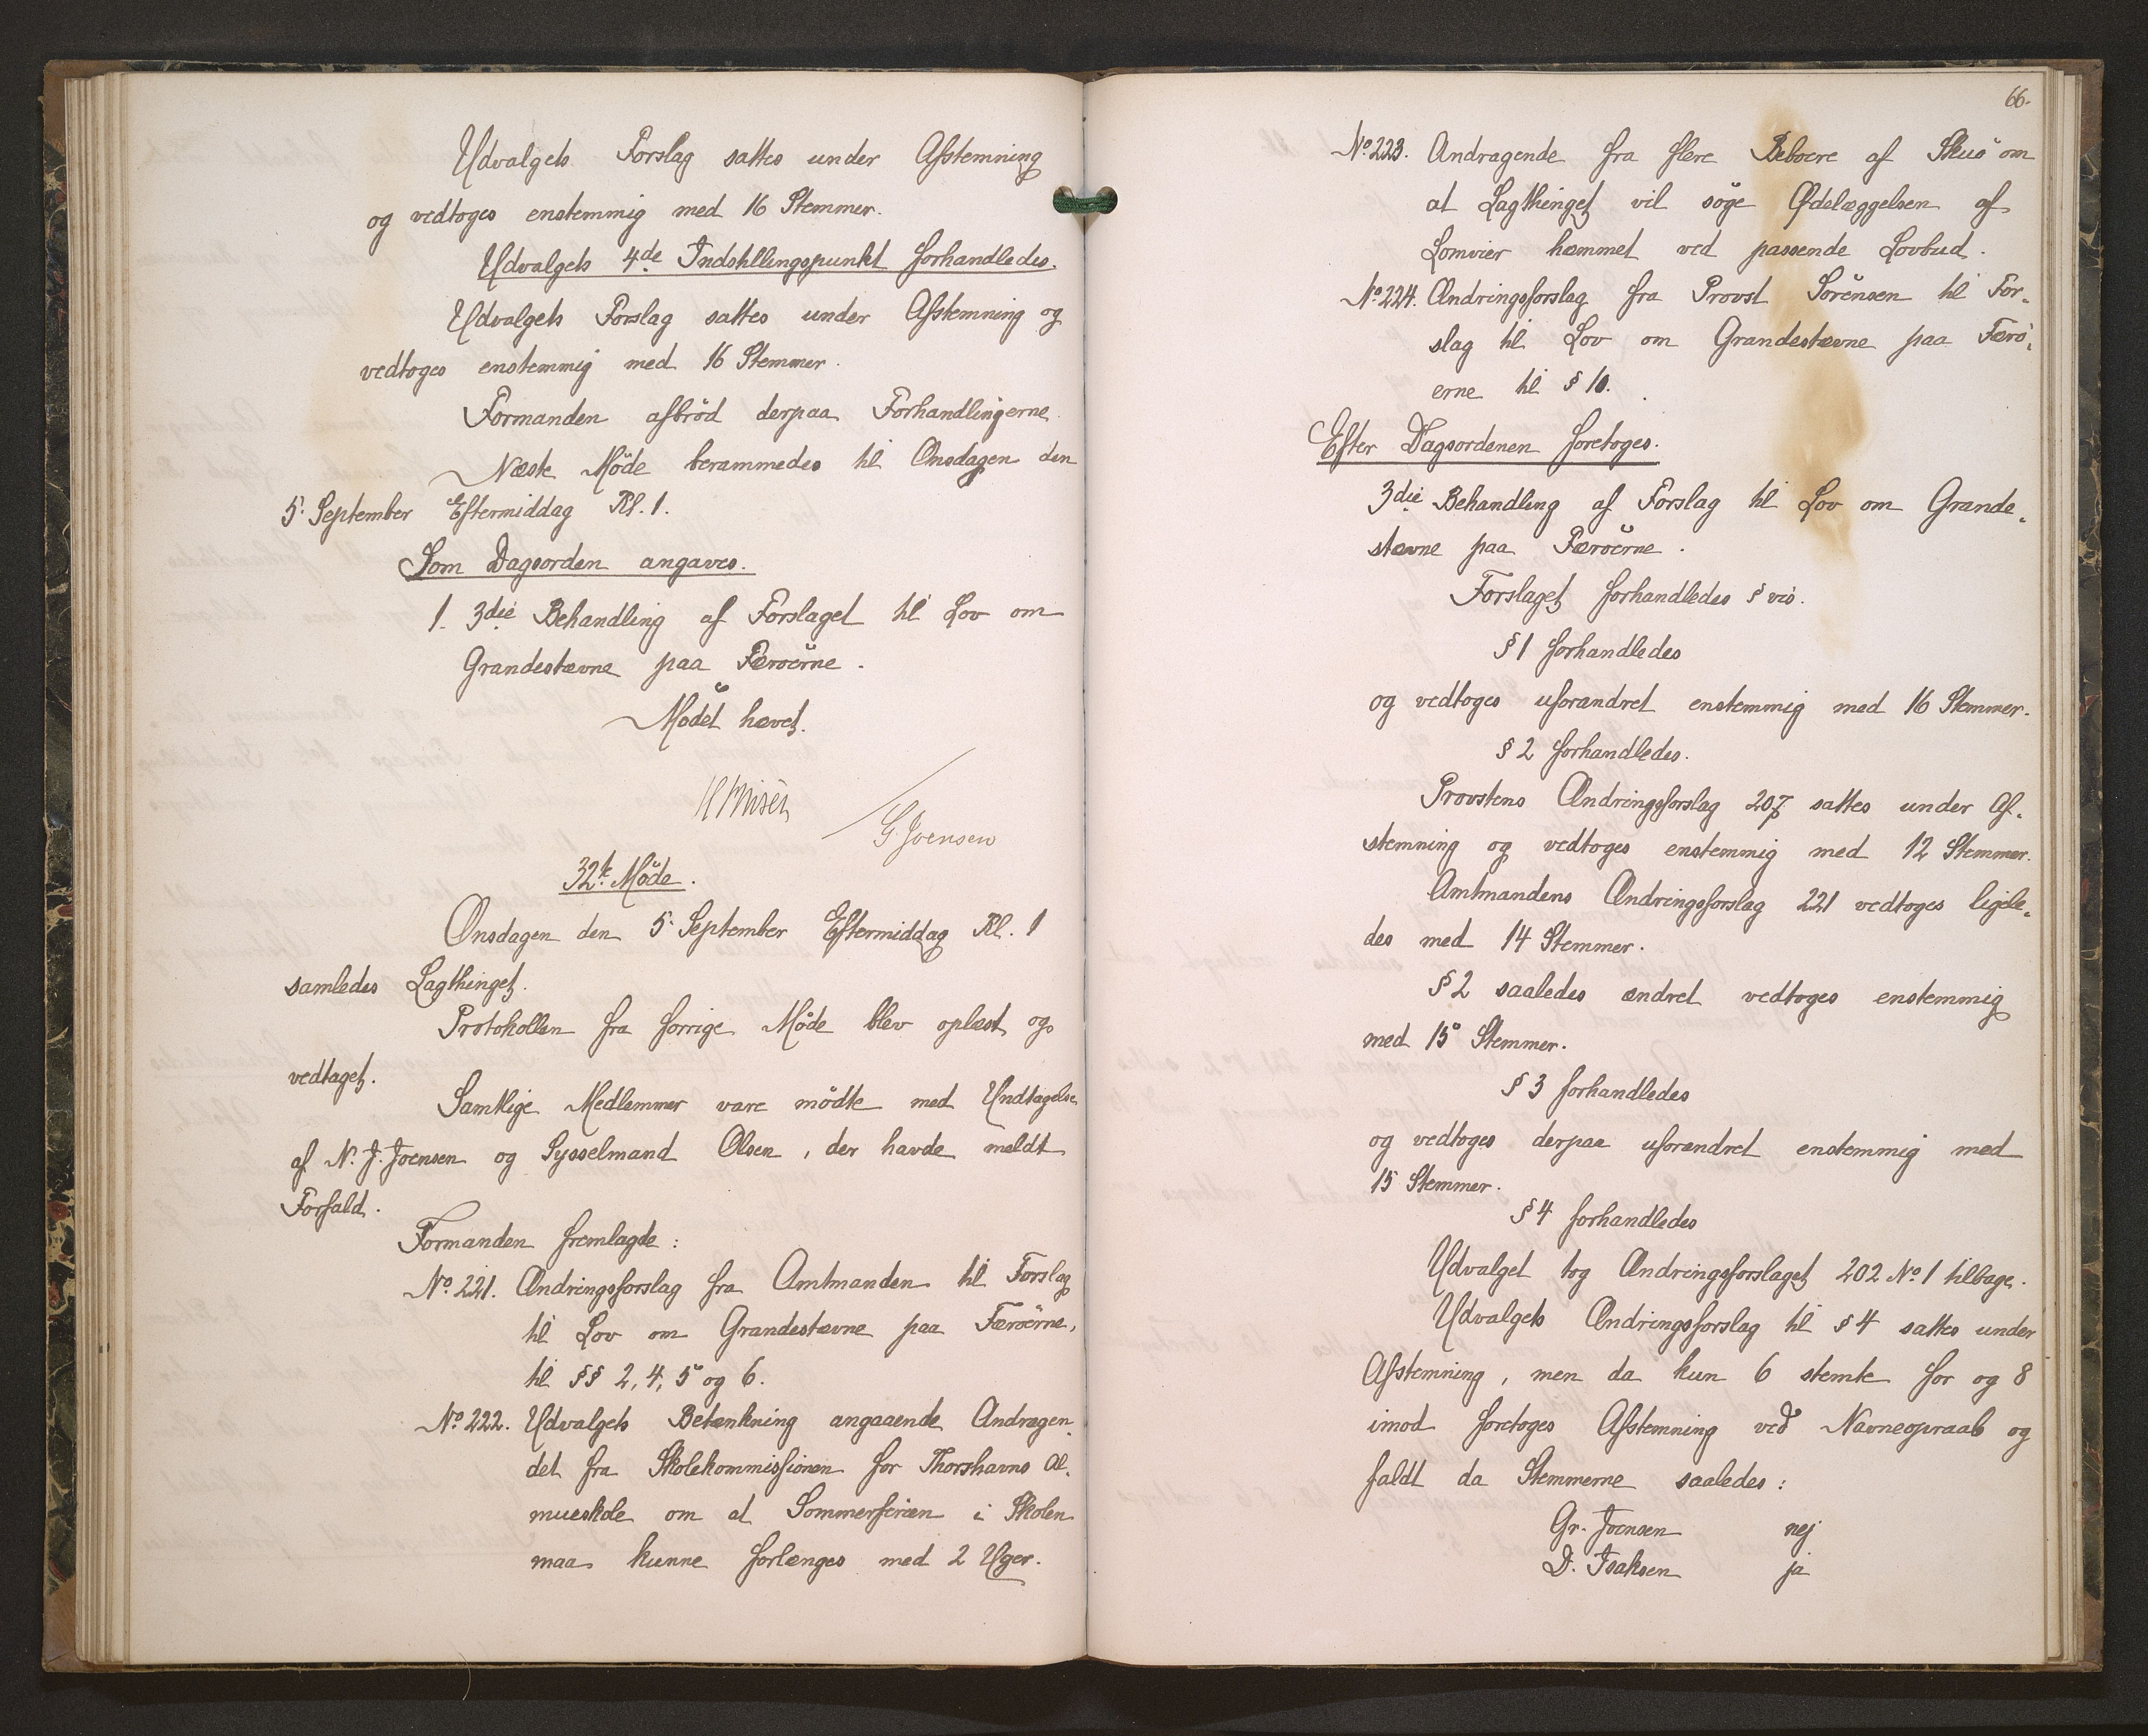 Udvalgets Forslag sattes under Afstemning
og vedtoges enstemmig med 16 Stemmer.
Udvalgets 4de Indstillingspunkt forhandledes.
Udvalgets Forslag sattes under Afstemning og
vedtoges enstemmig med 16 Stemmer.
Formanden afbröd derpaa Forhandlingerne
Næste Möde berammedes til Onsdagen den
5. September Eftermiddag Kl. 1.
Som Dagsorden angaves.
1. 3die Behandling af Forslaget til Lov om
Grandestævne paa Færöerne.
Mödet hævet.
G. Joensen
32te Möde.
Onsdagen den 5. September Eftermiddag Kl. 1
samledes Lagthinget.
Protokollen fra forrige Möde blev oplæst og
vedtaget.
Samtlige Medlemmer vare mödte med Undtagelse
af N. J. Joensen og Sysselmand Olsen, der havde meldt
Forfald.
Formanden fremlagde:
No. 221. Ændringsforslag fra Amtmanden til Forslag
til Lov om Grandestævne paa Færöerne,
til §§ 2, 4, 5 og 6.
No. 222. Udvalgets Betænkning angaaende Andragen-
det fra Skolekommissionen for Thorshavns Al-
mueskole om at Sommerferien i Skolen
maa kunne forlænges med 2 Uger.
66.
No. 223. Andragende fra flere Beboere af Skuö om
at Lagthinget vil söge Ødelæggelsen af
Lomvier hæmmet ved passende Lovbud.
No. 224. Ændringsforslag fra Provst Sörensen til For-
slag til Lov om Grandestævne paa Færö-
erne til § 10.
Efter Dagsordenen foretoges.
3die Behandling af Forslag til Lov om Grande-
stævne paa Færöerne.
Forslaget forhandledes § vis.
§ 1 forhandledes
og vedtoges uforandret enstemmig med 16 Stemmer.
§ 2 forhandledes.
Provstens Ændringsforslag 207 sattes under Af-
stemning og vedtoges enstemmig med 12 Stemmer.
Amtmandens Ændringsforslag 221 vedtoges ligele-
des med 14 Stemmer.
§ 2 saaledes ændret vedtoges enstemmig
med 15 Stemmer.
§ 3 forhandledes
og vedtoges derpaa uforandret enstemmig med
15 Stemmer.
§ 4 forhandledes
Udvalget tog Ændringsforslaget 202 No. 1 tilbage.
Udvalgets Ændringsforslag til § 4 sattes under
Afstemning, men da kun 6 stemte for og 8
imod foretoges Afstemning ved Navneopraab og
faldt da Stemmerne saaledes:
Gr. Joensen nej
D. Isaksen ja